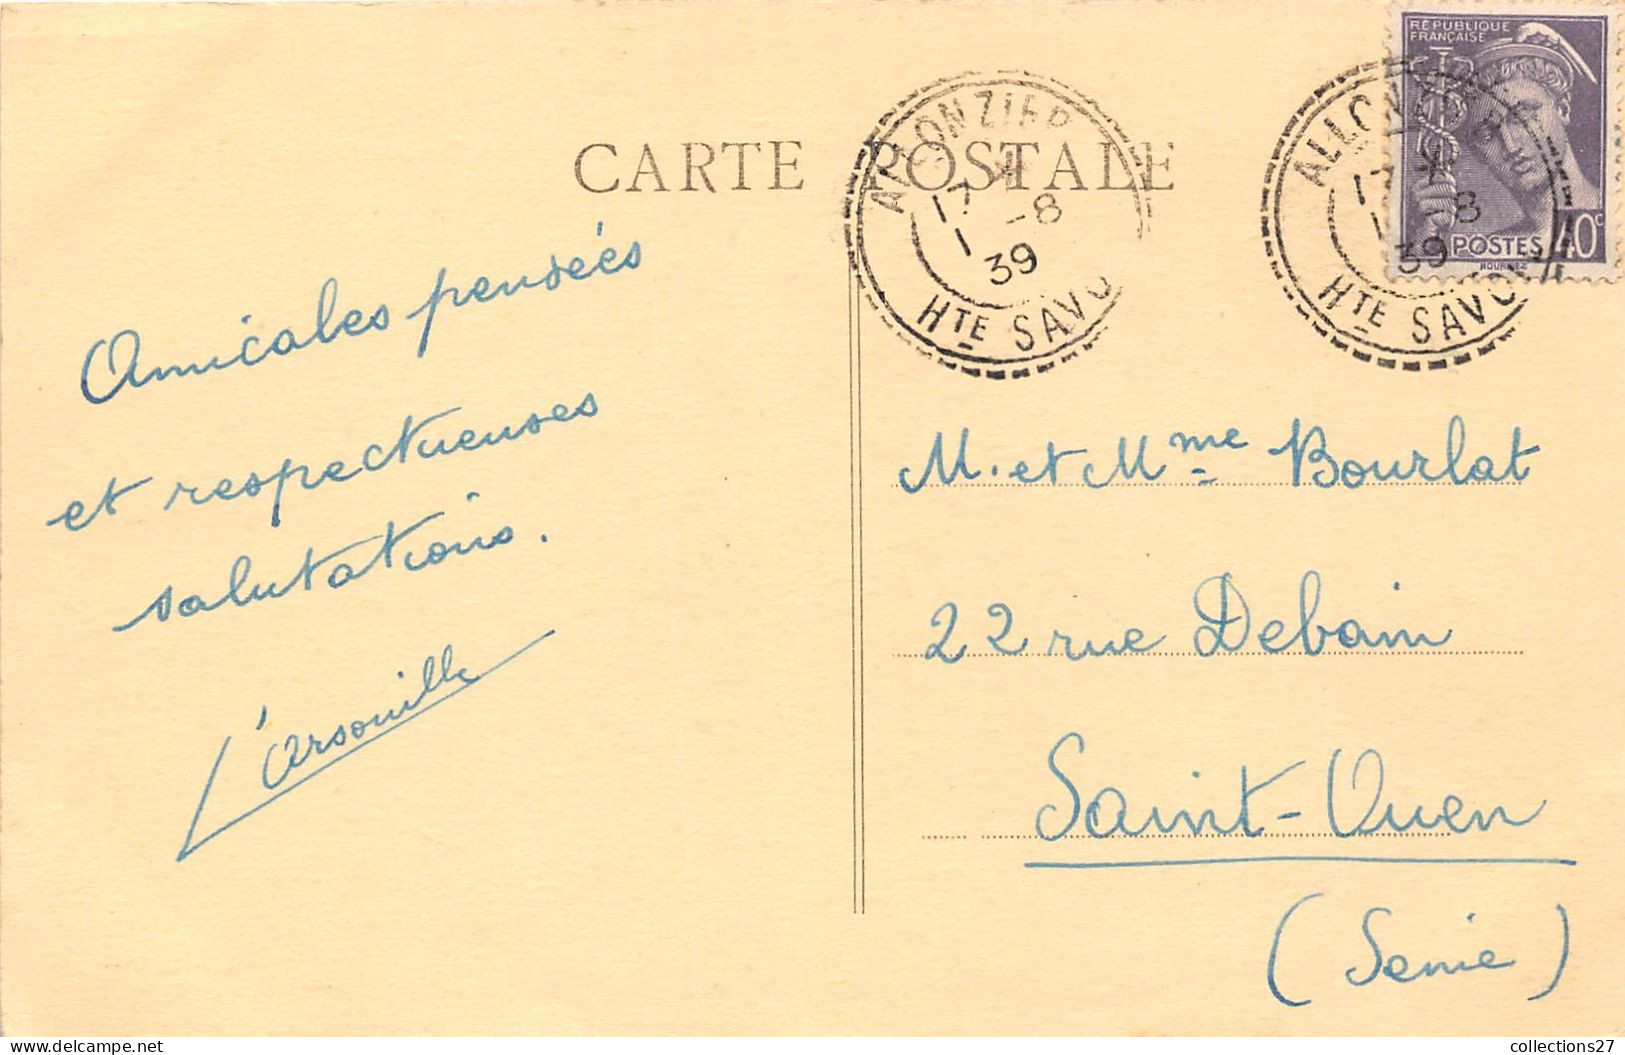 CARTE POSTALE
RÉPUBLIQUE
FRANÇAISE
POSTES 40c
ALLONZIER
17 -8
39
HTE SAVO
ALLONZIER
17 -8
39
HTE SAVO
Amicales penseés
et respectueuses
salutations.
L'Arsouille
M. et Mme Bourlat
22 rue Debain
Saint-Ouen
(Seine)
collections27